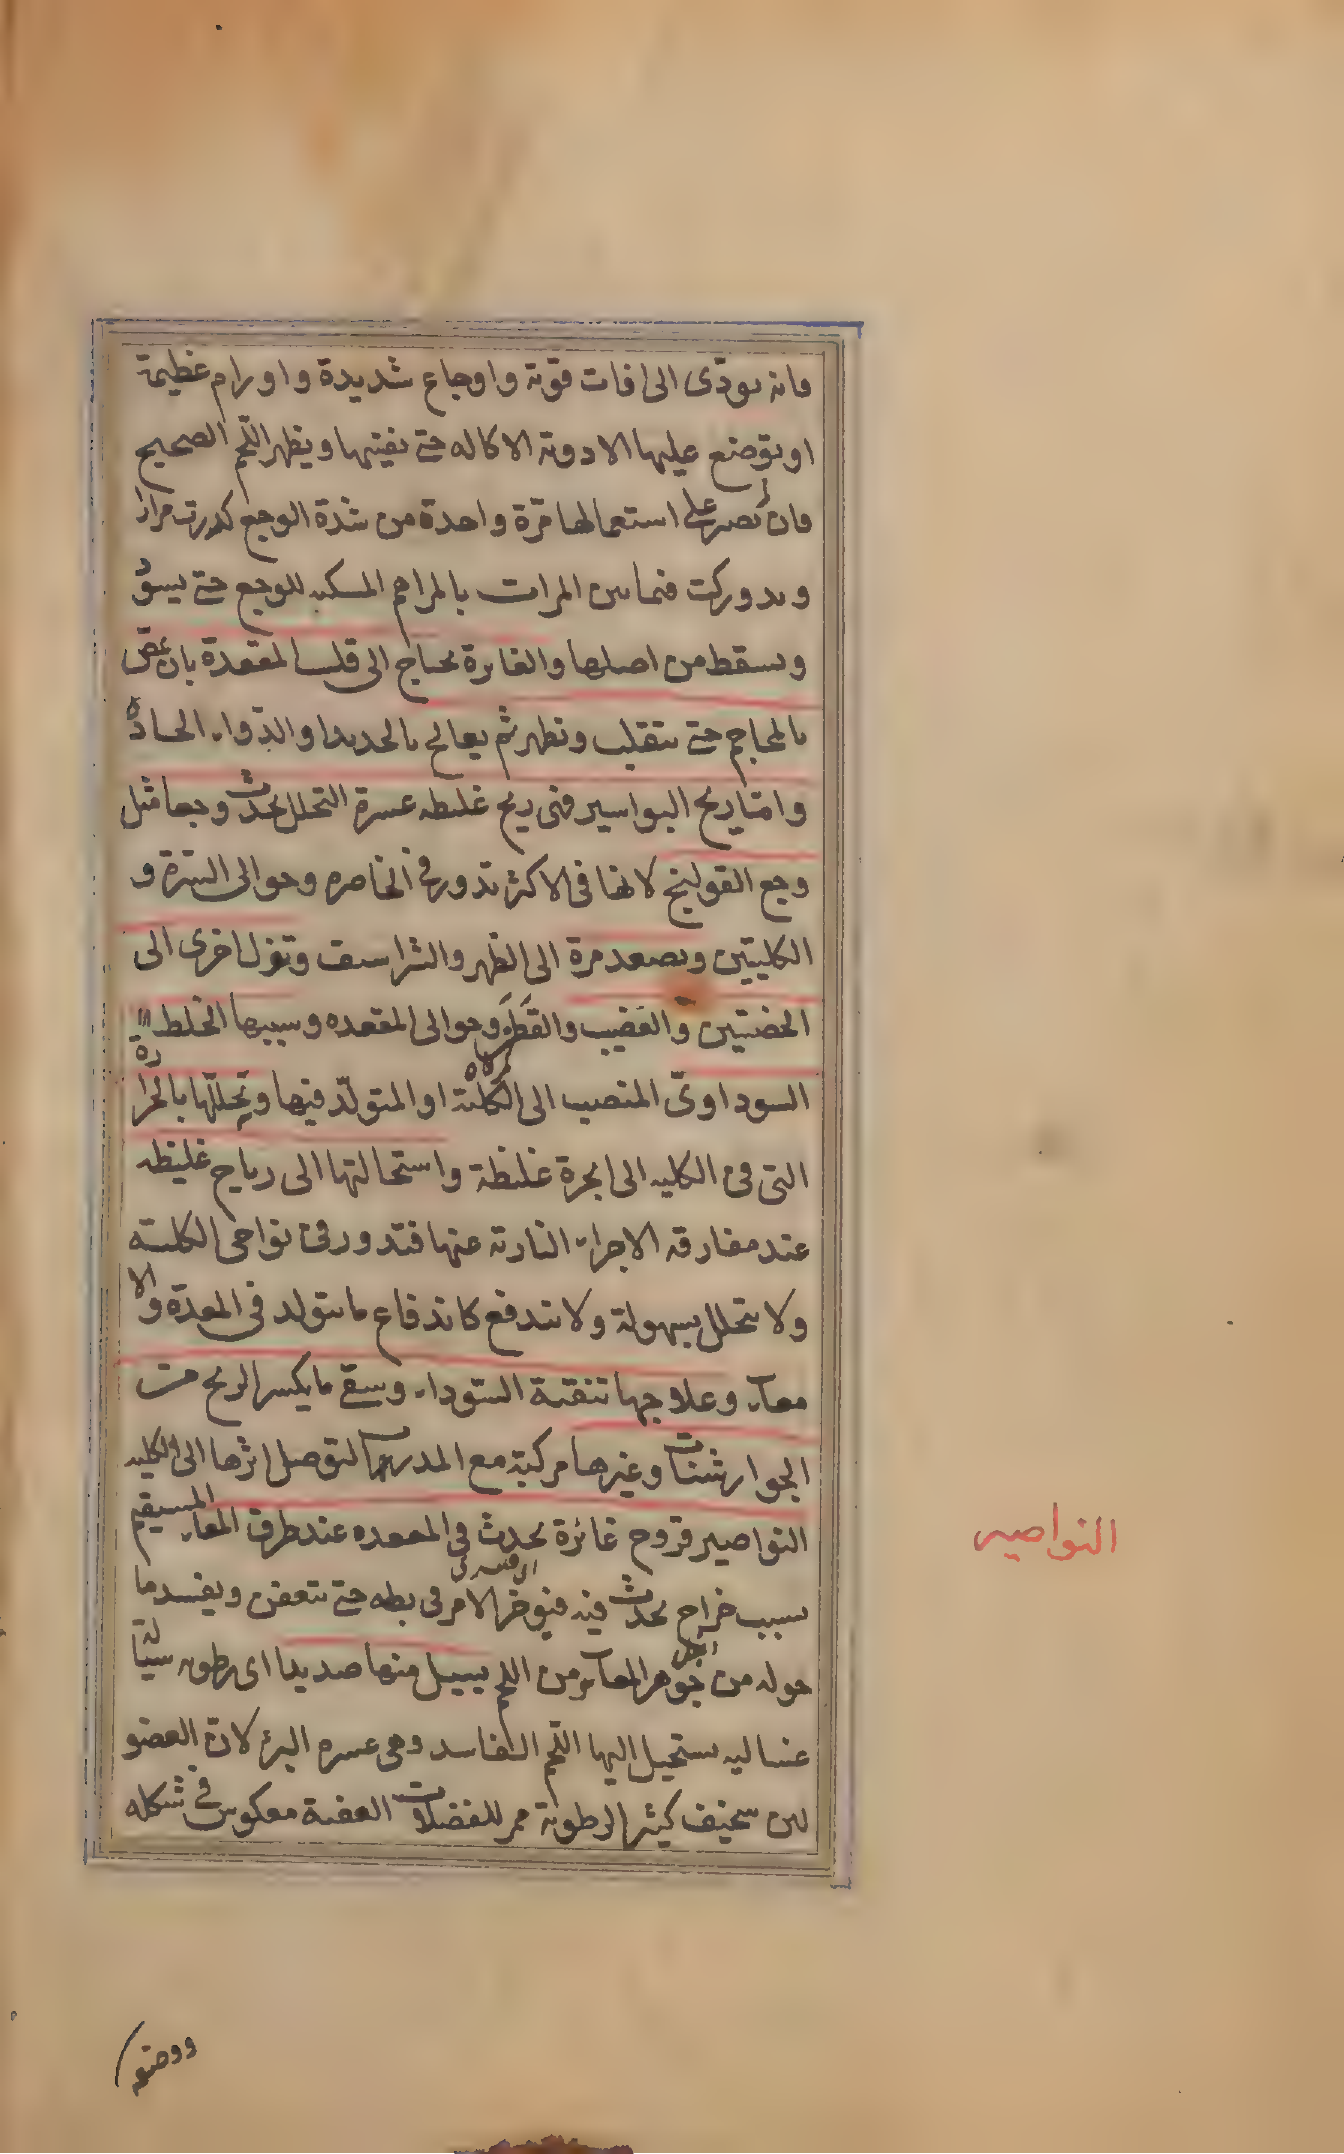 فانه يودّى الى افات قوية و اوجاع شديدة و اورام عظيمة
او توضع عليها الادوية الاكاله حتى يفنيها و يظهر اللّحم الصحيح
فان لم يصبر على استعمالها مرّة واحدة من شدة الوجع كررت مرارا
و تدوركت فيما بين المرات بالمراهم المسكنه للوجع حتى يسودّ
و يسقط من اصلها و الغايرة يحتاج الى قلب المقعدة بان يمصّ
بالمحاجم حتى تنقلب و تظهر ثم يعالج بالحديد او الدّواء الحادّ
و امّا ريح البواسير فهى ريح غليظه عسرة التحلل يحدث وجعا مثل
وجع القولنج لانها فى الاكثر تدور فى الخاصره و حوالى السّرة و
الكليتين و يصعد مرة الى الظهر و الشراسيف و تنزل اخرى الى
الخصيتين و القضيب و القطن و حوالى المقعده و سببها الخلط
السوداوىّ المنصب الى الكلية او المتولّد فيها و تحللّها بالحرارة
التى فى الكليه الى ابخرة غليظة و استحالتها الى رياح غليظه
عند مفارقه الاجزاء النارية عنها فتدور فى نواحى الكلية
و لا يتحلل بسهولة و لا تندفع كاندفاع ما يتولد فى المعدة و الا
معآء و علاجها تنقية السّوداء و سقى ما يكسر الريح من
الجوارشنات و غيرها مركبة مع المدرات لتوصل اثرها الى الكليه
النواصير قروح غائرة يحدث فى المقعده عند طرف المعاء المستقيم
بسبب خراج يحدث فيه فيوخر الامر فى بطه حتى يتعفن و يفسد ما
حوله من جوهر المعآء من اللحم يسيل منها صديدا اى رطوبه سيّالة
غساليه يستحيل اليها اللّحم الفاسد و هى عسره البرء لان العضو
لين سخيف كثير الرطوبة ممر للفضلات العفنة معكوس فى شكله
النواصير
ووضعه